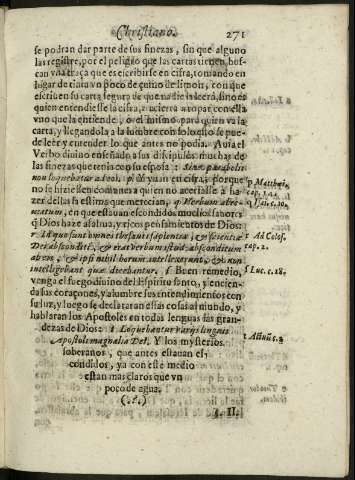 Christiano. 271
se podran dar parte de sus finezas, sin que alguno
las registre, por el peligro que las cartas tienen, bus-
can vna traça que es escribirse en cifra, tomando en
lugar de tinta vn poco de çumo de limon, con que
escriuen su carta segura de que nadie la leerá, sino es
quien entendiesse la cifra, o acierta a topar con ella
vno que la entiende, o el mismo para quien va la
carta, y llegandola a la lumbre con solo esso se pue-
de leer y entender lo que antes no podia. Auia el
Verbo diuino enseñado a sus discipulos muchas de
las finezas que tenia con su esposa: Sine parabolis
non loquebatur
no se hiziessen comunes a quien no
zer dellas la estima que merecian, q Verbum abre-
uiatum, en que estauan escondidos muchos
q Dios haze al alma, y ricos pensamientos de Dios:
r In quo sunt omnes thesauri sapientiæ, & scientiæ
Dei absconditi, & erat verbum istud absconditum
ab eos, & ipsi nihil horum intellexerunt, & non
intelligebant quæ dicebantur. s Buen remedio,
venga el fuego diuino del Espiritu santo, y encien-
da sus coraçones, y alumbre sus entendimientos con
su luz, y luego se declararan essas cosas al mundo, y
hablaran los Apostoles en todas lenguas las gran-
dezas de Dios: t Loquebantur varijs linguis
Apostoli magnalia Dei. Y los mysterios
soberanos, que antes estauan es-
condidos, ya con este medio
estan mas claros que vn
poço de agua.
(.?.)
p Matthæi,
q Isai. c. 10.
r Ad Colos.
cap. 2.
s Luc. c. 18.
t Actuũ c. 2
§. II.